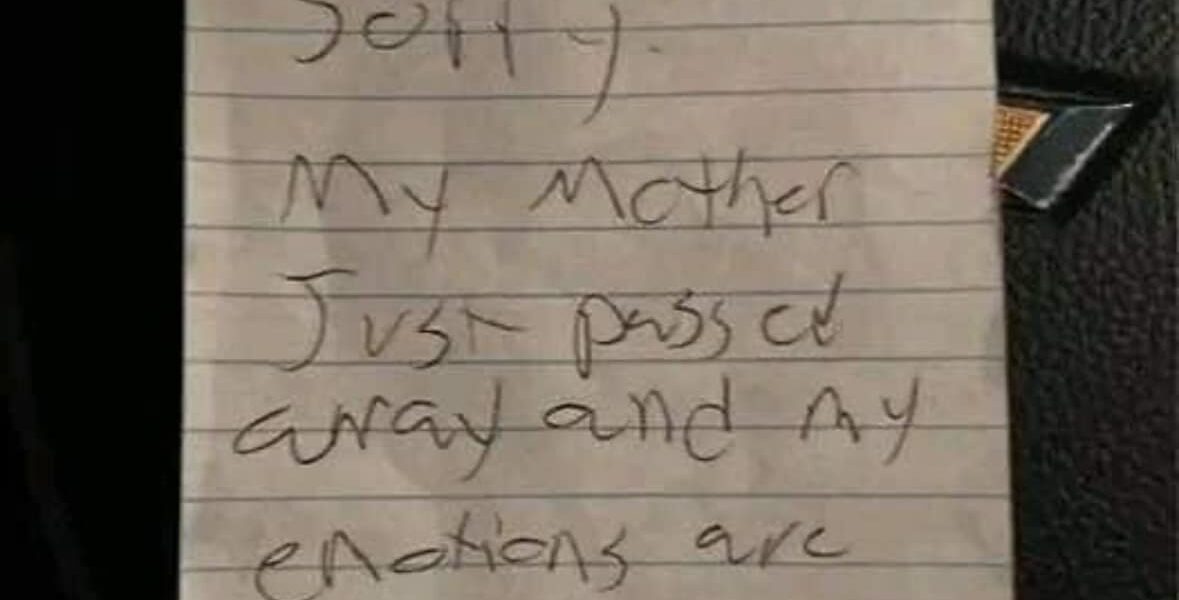 Sorry.
My Mother
Just passed
away and my
emotions are